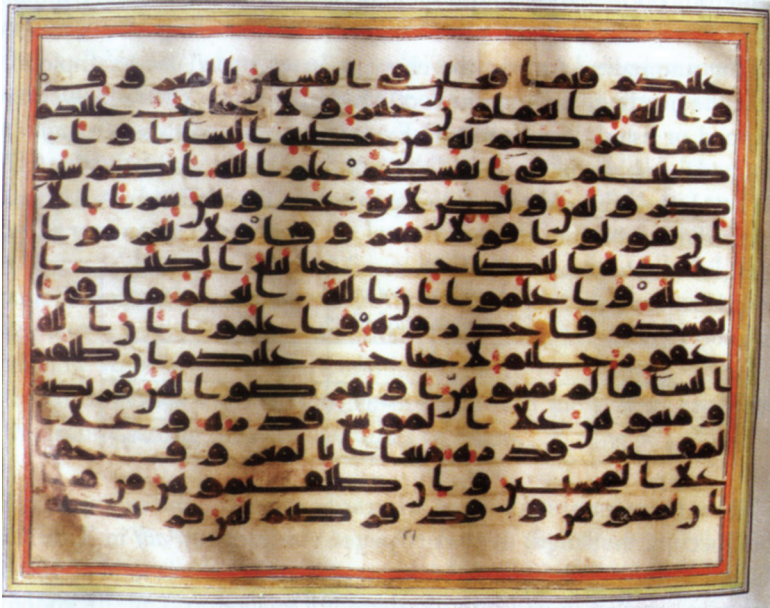 عليكم فيما فعلن في انفسهن بالمعروف
والله بما تعملون خبير ولا جناح عليكم
فيما عرضتم به من خطبة النسا او ا
كننتم في انفسكم علم الله انكم ستذ
كرونهن ولكن لا تواعدوهن سرا الا
ان تقولوا قولا معروفا ولا تعزموا
عقدة النكاح حتى يبلغ الكتب ا
جله واعلموا ان الله يعلم ما في ا
نفسكم فاحذروه واعلموا ان الله
غفور حليم لا جناح عليكم ان طلقتم
النسا ما لم تمسوهن او تفرضوا لهن فريضة
ومتعوهن على الموسع قدره وعلى ا
لمقتر قدره متاعا بالمعروف حقا
على المحسنين وان طلقتموهن من قبل
ان تمسوهن وقد فرضتم لهن فريضة